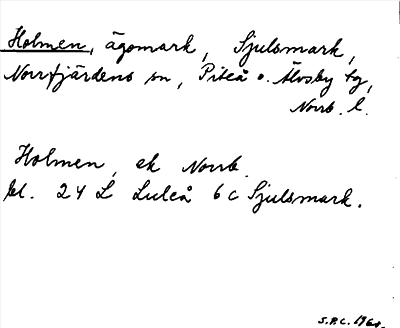 Holmen, ägomark, Sjulsmark,
Norrfjärdens sn, Piteå o. Älvsby tg,
Norrb. l.
Holmen, ek Norrb.
bl. 24 L Luleå 6 c Sjulsmark.
S.P.C. 196